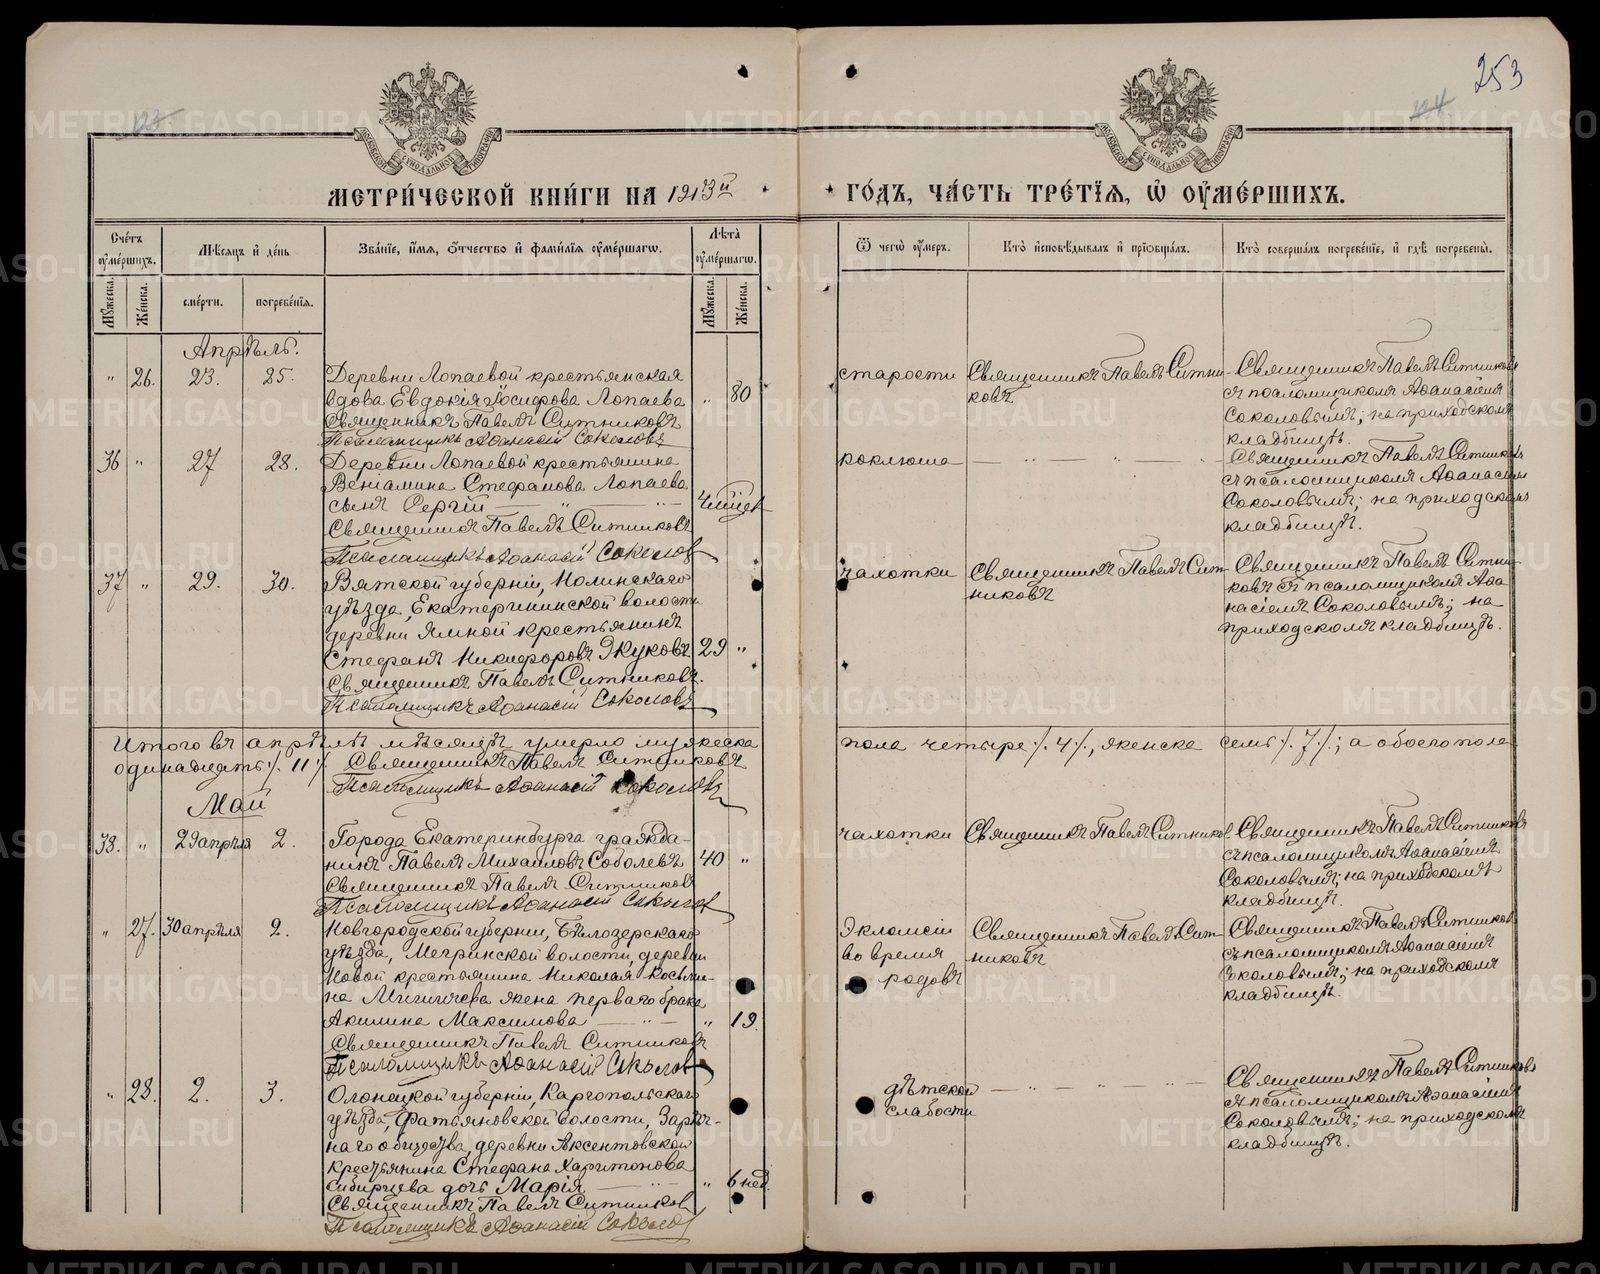 253
МЕТРИ́ЧЕСКОЙ КНИ́ГИ НА 1913й
ГО́ДЪ, ЧА́СТЬ ТРЕ́ТЇЯ, Ѡ҆ ОУ҆МЕ́РШИХЪ.
МОСКОВСКОЙ СѴНОДАЛЬНОЙ ТИПОГРАФІИ
МОСКОВСКОЙ СѴНОДАЛЬНОЙ ТИПОГРАФІИ
Сче́тъ оу҆ме́ршихъ.
Мѣ́сяцъ и҆ де́нь
Зва́нїе, и҆́мя, ѻ҆́тчество и҆ фами́лїя оу҆ме́ршагѡ.
Лѣ́та оу҆ме́ршагѡ.
Ѿ чегѡ̀ оу҆́меръ.
Кто̀ и҆сповѣ́дывалъ и҆ прїѡбща́лъ.
Кто̀ соверша́лъ погребе́нїе, и҆ гдѣ̀ погребены̀.
Мꙋ́жеска.
Же́нска.
сме́рти.
погребе́нїя.
Мꙋ́жеска.
Же́нска.
Апрѣль.
" 26. 23. 25. Деревни Лопаевой крестьянская
вдова Евдокія Іосифова Лопаева " 80
Священникъ Павелъ Ситниковъ
Псаломщикъ Аѳанасій Соколовъ
старости
Священникъ Павелъ Ситни-
ковъ
Священникъ Павелъ Ситниковъ
съ псаломщикомъ Аѳанасіемъ
Соколовымъ; на приходскомъ
кладбищѣ.
36 " 27 28. Деревни Лопаевой крестьянина
Веніамина Стефанова Лопаева
сынъ Сергій — " — " — 4 мѣсец
Священникъ Павелъ Ситниковъ
Псаломщикъ Аѳанасій Соколов
коклюша — " — " —
Священникъ Павелъ Ситниковъ
съ псаломщикомъ Аѳанасіемъ
Соколовымъ; на приходскомъ
кладбищѣ.
37 " 29. 30. Вятской губерніи, Нолинскаго
уѣзда, Екатерининской волости
деревни Ямной крестьянинъ
Стефанъ Никифоровъ Жуковъ 29 "
Священникъ Павелъ Ситниковъ.
Псаломщикъ Аѳанасій Соколовъ
чахотки
Священникъ Павелъ Сит-
никовъ
Священникъ Павелъ Ситни-
ковъ съ псаломщикомъ Аѳа
насіемъ Соколовымъ; на
приходскомъ кладбищѣ.
Итого въ апрѣлѣ мѣсяцѣ умерло мужеска
пола четыре ·/. 4 ·/., женска семь ·/. 7 ·/.; а обоего пола
одинадцать ·/. 11 ·/. Священникъ Павелъ Ситниковъ
Псаломщикъ Аѳанасій Соколовъ
Май
38. " 29 апрѣля 2. Города Екатеринбурга гражда-
нинъ Павелъ Михаиловъ Соболевъ 40 "
Священникъ Павелъ Ситниковъ
Псаломщикъ Аѳанасій Соколов
чахотки
Священникъ Павелъ Ситников
Священникъ Павелъ Ситниковъ
съ псаломщикомъ Аѳанасіемъ
Соколовымъ; на приходскомъ
кладбищѣ.
" 27. 30 апрѣля 2. Новгородской губерніи, Бѣлозерскаго
уѣзда, Мегринской волости, деревни
Новой крестьянина Николая Косьми-
на жена перваго брака
Акилина Максимова — " — " 19.
Священникъ Павелъ Ситниковъ
Псаломщикъ Аѳанасій Соколов
Эклямсіи
во время
родовъ
Священникъ Павелъ Сит-
никовъ
Священникъ Павелъ Ситников
съ псаломщикомъ Аѳанасіемъ
Соколовымъ; на приходскомъ
кладбищѣ.
" 28. 2. 3. Олонецкой губерніи, Каргопольскаго
уѣзда, Фатьяновской волости, Зарѣч-
наго общества, деревни Аксентовской
крестьянина Стефана Харитонова
Сибирцева дочь Марія — " — " 6 нед.
Священникъ Павелъ Ситников
Псаломщикъ Аѳанасій Соколов
дѣтской
слабости
— " — " — " —
Священникъ Павелъ Ситниковъ
съ псаломщикомъ Аѳанасіемъ
Соколовымъ; на приходскомъ
кладбищѣ.
METRIKI.GASO-URAL.RU